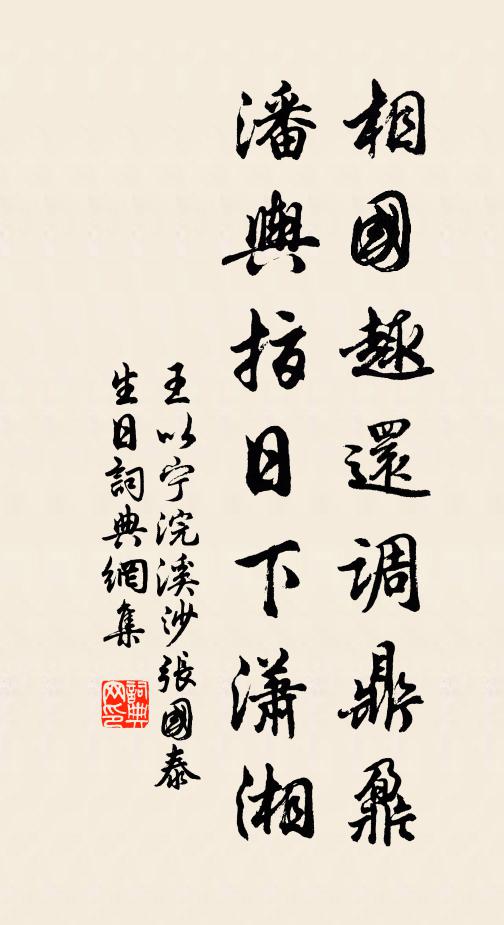 相國趣還調鼎鼐
潘輿指日下瀟湘
王以宁浣溪沙張國泰
生日詞典網集
詞典
网印